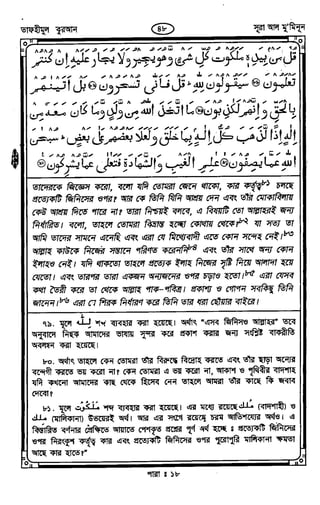 তাফহীমুল কুরআন ৪৮ সূরা আল মু'মিনুন
قُلْ مَنْ بِيَدِهِ مَلَكُوتُ كُلِّ شَيْءٍ وَّهُوَ يُجِيرُ وَلَا يُجَارُ عَلَيْهِ إِنْ كُنْتُمْ
تَعْلَمُونَ ﴿٨٨﴾ سَيَقُولُونَ لِلَّهِ قُلْ فَأَنَّى تُسْحَرُونَ ﴿٨٩﴾ بَلْ أَتَيْنَهُمْ
بِالْحَقِّ وَإِنَّهُمْ لَكَذِبُونَ ﴿٩٠﴾ مَا اتَّخَذَ اللَّهُ مِنْ وَّلَدٍ وَّمَا كَانَ مَعَهُ مِنْ
إِلَهٍ إِذًا لَّذَهَبَ كُلُّ إِلَهٍ بِمَا خَلَقَ وَلَعَلَا بَعْضُهُمْ عَلَى بَعْضٍ سُبْحَنَ
اللَّهِ عَمَّا يَصِفُونَ ﴿٩١﴾ عَلِمِ الْغَيْبِ وَالشَّهَادَةِ فَتَعَلَى عَمَّا يُشْرِكُونَ ﴿٩٢﴾
তাদেরকে জিজ্ঞেস করো, বলো যদি তোমরা জেনে থাকো, কার কর্তৃত্ব৮১ চলছে
প্রত্যেকটি জিনিসের ওপর? আর কে তিনি যিনি আশ্রয় দেন এবং তাঁর মোকাবিলায়
কেউ আশ্রয় দিতে পারে না? তারা নিশ্চয়ই বলবে, এ বিষয়টি তো আল্লাহরই জন্য
নির্ধারিত। বলো, তাহলে তোমরা বিভ্রান্ত হচ্ছো কোথায় থেকে? যা সত্য তা
আমি তাদের সামনে এনেছি এবং এরা যে মিথ্যেবাদী এতে কোন সন্দেহ নেই।
আল্লাহ কাউকে নিজের সন্তানে পরিণত করেননি এবং তাঁর সাথে অন্য কোন
ইলাহও নেই। যদি থাকতো তাহলে প্রত্যেক ইলাহ নিজের সৃষ্টি নিয়ে আলাদা হয়ে
যেতো। এবং তারপর তারা একজন অন্যজনের ওপর চড়াও হতো। এরা যেসব
কথা তৈরী করে তা থেকে আল্লাহ পাক-পবিত্র। প্রকাশ্য ও গোপন সবকিছু তিনি
জানেন। এরা যে শিরক নির্ধারণ করে তিনি তার ধরা ছোঁয়ার বাইরে।
৭৯. মূলে لِلَّهِ শব্দ ব্যবহার করা হয়েছে। অর্থাৎ "এসব জিনিসও আল্লাহর" তবে
অনুবাদে নিছক আমাদের ভাষায় সুন্দর করে প্রকাশ করার জন্য সংশ্লিষ্ট বাকরীতি
অবলম্বন করা হয়েছে।
৮০. অর্থাৎ তাহলে কেন তোমরা তাঁর বিরুদ্ধে বিদ্রোহ করতে এবং তাঁর ছাড়া অন্যের
বন্দেগী করতে ভয় করো না? কেন তোমরা এ ভয় করো না, আকাশ ও পৃথিবীর বাদশাহ
যদি কখনো আমাদের কাছ থেকে হিসেব নেন তাহলে আমরা তাঁর কাছে কি জবাব
দেবো?
৮১. মূলে ملكوت শব্দ ব্যবহার করা হয়েছে। এর মধ্যে রয়েছে ملك (বাদশাহী) ও
ملك (মালিকানা) উভয়েরই অর্থ। আর এর সাথে রয়েছে চরম আতিশয্যের অর্থও। এ
বিস্তারিত বর্ণনার প্রেক্ষিতে আয়াতে পেশকৃত প্রশ্নের পূর্ণ অর্থ হচ্ছে ঃ প্রত্যেকটি জিনিসের
ওপর নিরংকুশ কর্তৃত্ব কার এবং প্রত্যেকটি জিনিসের ওপর পুরোপুরি মালিকানা ক্ষমতা
আছে কার হাতে?"
পারা ঃ ১৮